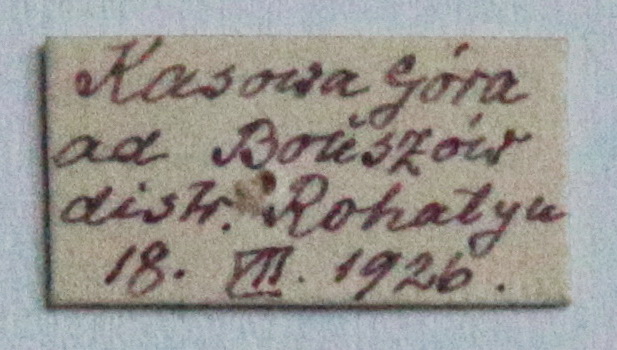 Kasowa Góra
ad Bouszów
distr. Rohatyn
18. VII. 1926.